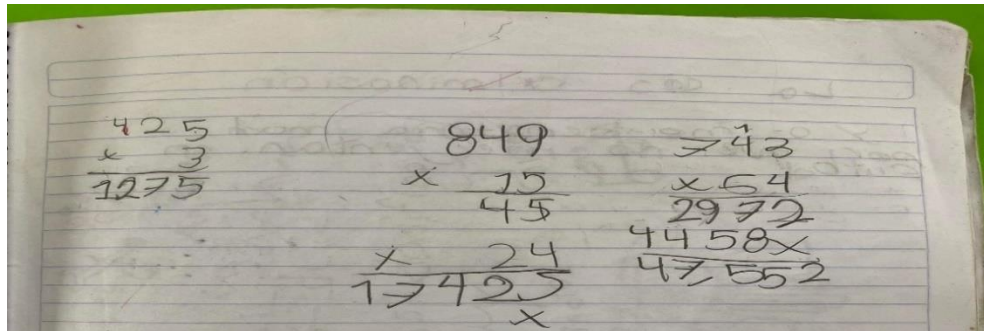 425
x 3
1275
849
x 15
45
x 24
17425
x
1
743
x 64
2972
4458x
47,552